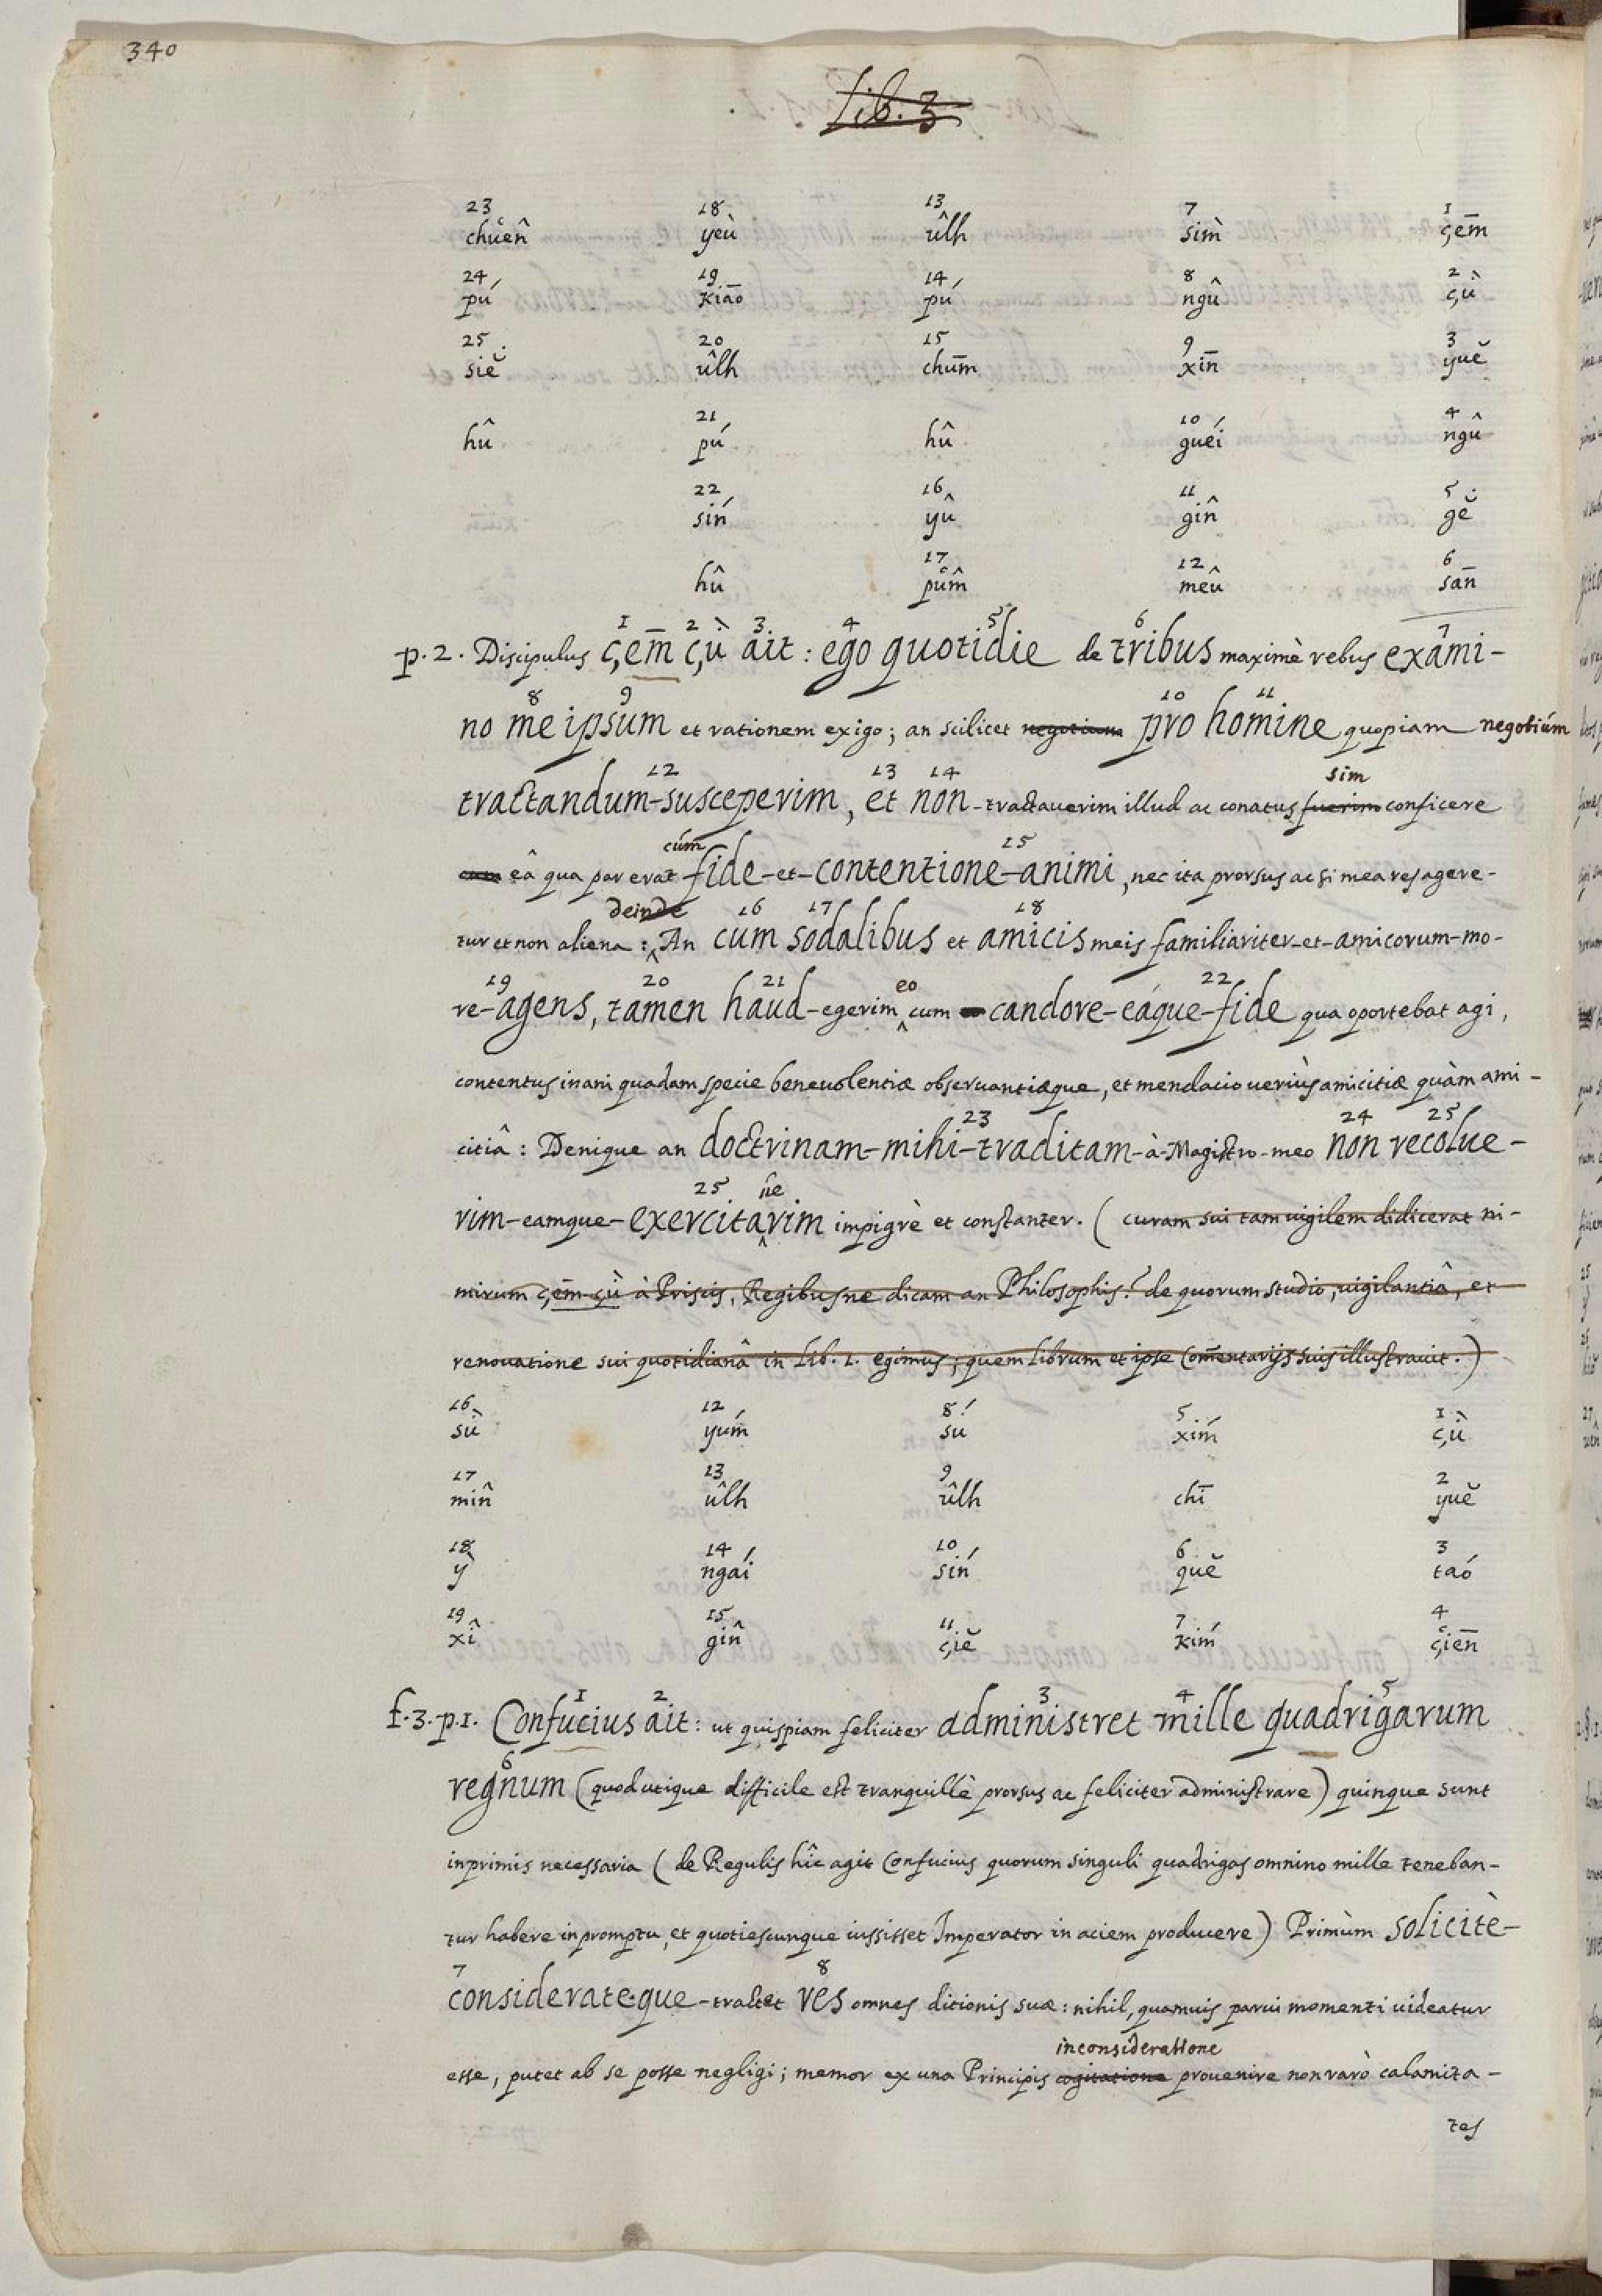 340
Lib. 3
23 18 13 7 1
chuên yeù ûlh simì çem̄
24 19 14 8 2
pú kiāo pú ngû çù
25 20 15 9 3
siĕ ûlh chum̄ xin̄ yuĕ
21 10 4
hû pú hû guéi ngû
22 16 11 5
sín yû gîn gĕ
17 12 6
hû pûm mêu san̄
1 2 3 4 5 6 7
p. 2. Discipulus çem̄ çù ait: ego quotidie de tribus maximè rebus exami-
8 9 10 11
no me ipsum et rationem exigo; an scilicet negotium pro homine quopiam negotium
12 13 14 sim
tractandum-susceperim, et non-tractauerim illud ac conatus fuerim conficere
cum 15
cum eâ qua par erat fide-et-contentione-animi, nec ita prorsus ac si mea res agere-
deinde 16 17 18
tur et non aliena: An cum sodalibus et amicis meis familiariter-et-amicorum-mo-
19 20 21 eo 22
re-agens, tamen haud-egerim cum candore-eáque-fide qua oportebat agi,
contentus inani quadam specie beneuolentiæ obseruantiæque, et mendacio veriùs amicitiæ quàm ami-
23 24 25
citiâ: Denique an doctrinam-mihi-traditam-à-Magistro-meo non recolue-
25 ue
rim-eamque-exercitarim impigrè et constanter. ( curam sui tam vigilem didicerat ni-
mirum çem̄ çù à Priscis, Regibus ne dicam an Philosophis? de quorum studio, vigilantiâ, et
renouatione sui quotidianâ in Lib. 1. egimus; quem Librum et ipse Com̄entarijs suis illustrauit.)
16 12 8 5 1
sù yúm su xím çù
17 13 9 2
mîn ûlh ûlh chī yuĕ
18 14 10 6 3
ỳ ngái sín quĕ táo
19 15 11 7 4
xî gîn çiĕ kím çien̄
1 2 3 4 5
f. 3. p. 1. Confucius ait: ut quispiam feliciter administret mille quadrigarum
6
regnum (quod utique difficile est tranquillè prorsus ac feliciter administrare) quinque sunt
inprimis necessaria ( de Regulis hîc agit Confucius quorum singuli quadrigas omnino mille teneban-
tur habere in promptu, et quotiescunque iussisset Imperator in aciem producere) Primùm solicitè-
7 8
considerateque-tractet res omnes ditionis suæ: nihil, quamuis parui momenti uideatur
inconsideratione
esse, putet ab se posse negligi; memor ex una Principis cogitatione prouenire non rarò calamita-
tes